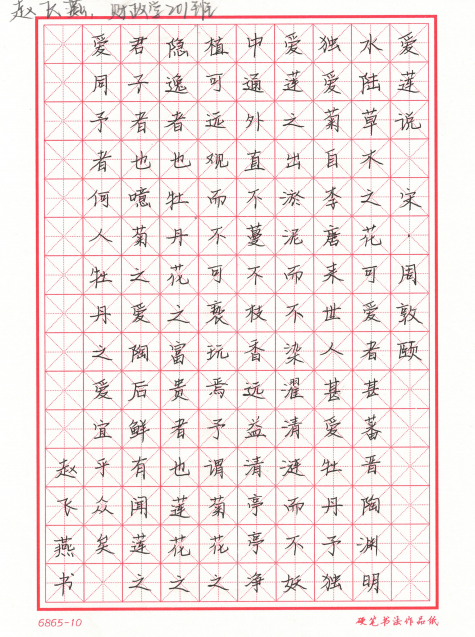 赵飞燕. 财政学201班
爱莲说 宋·周敦颐
水陆草木之花可爱者甚蕃晋陶渊明
独爱菊自李唐来世人甚爱牡丹予独
爱莲之出淤泥而不染濯清涟而不妖
中通外直不蔓不枝香远益清亭亭净
植可远观而不可亵玩焉予谓菊花之
隐逸者也牡丹花之富贵者也莲花之
君子者也噫菊之爱陶后鲜有闻莲之
爱同予者何人牡丹之爱宜乎众矣
赵飞燕书
6865-10 硬笔书法作品纸